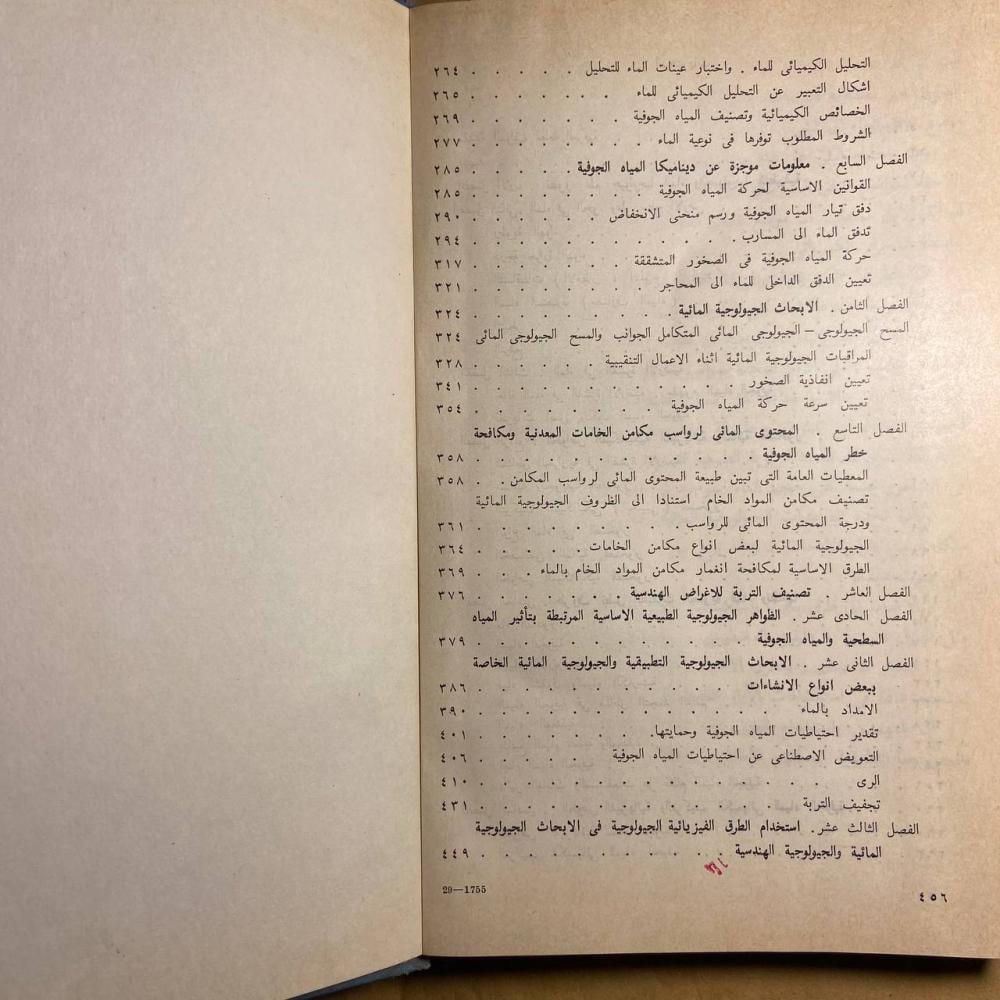 التحليل الكيميائى للماء . واختبار عينات الماء للتحليل . . . . . ٢٦٤
اشكال التعبير عن التحليل الكيميائى للماء . . . . . . . ٢٦٥
الخصائص الكيميائية وتصنيف المياه الجوفية . . . . . . . ٢٦٩
الشروط المطلوب توفرها فى نوعية الماء . . . . . . . . ٢٧٧
الفصل السابع . معلومات موجزة عن ديناميكا المياه الجوفية . . . . . ٢٨٥
القوانين الاساسية لحركة المياه الجوفية . . . . . . . . ٢٨٥
دفق تيار المياه الجوفية ورسم منحنى الانخفاض . . . . . . ٢٩٠
تدفق الماء الى المسارب . . . . . . . . . . . ٢٩٤
حركة المياه الجوفية فى الصخور المتشققة . . . . . . . ٣١٧
تعيين الدفق الداخلى للماء الى المحاجر . . . . . . . ٣٢١
الفصل الثامن . الابحاث الجيولوجية المائية . . . . . . . . ٣٢٤
المسح الجيولوجى – الجيولوجى المائى المتكامل الجوانب والمسح الجيولوجى المائى ٣٢٤
المراقبات الجيولوجية المائية اثناء الاعمال التنقيبية . . . . . . ٣٢٨
تعيين انفاذية الصخور . . . . . . . . . . . ٣٤١
تعيين سرعة حركة المياه الجوفية . . . . . . . . ٣٥٤
الفصل التاسع . المحتوى المائى لرواسب مكامن الخامات المعدنية ومكافحة
خطر المياه الجوفية . . . . . . . . . . . ٣٥٨
المعطيات العامة التى تبين طبيعة المحتوى المائى لرواسب المكامن . . ٣٥٨
تصنيف مكامن المواد الخام استنادا الى الظروف الجيولوجية المائية
ودرجة المحتوى المائى للرواسب . . . . . . . . ٣٦١
الجيولوجية المائية لبعض انواع مكامن الخامات . . . . . ٣٦٤
الطرق الاساسية لمكافحة انغمار مكامن المواد الخام بالماء . . . ٣٦٩
الفصل العاشر . تصنيف التربة للاغراض الهندسية . . . . . . . ٣٧٦
الفصل الحادى عشر . الظواهر الجيولوجية الطبيعية الاساسية المرتبطة بتأثير المياه
السطحية والمياه الجوفية . . . . . . . . . . . ٣٧٩
الفصل الثانى عشر . الابحاث الجيولوجية التطبيقية والجيولوجية المائية الخاصة
ببعض انواع الانشاءات . . . . . . . . . . ٣٨٦
الامداد بالماء . . . . . . . . . . . . ٣٩٠
تقدير احتياطيات المياه الجوفية وحمايتها. . . . . . . . ٤٠١
التعويض الاصطناعى عن احتياطيات المياه الجوفية . . . . . ٤٠٦
الرى . . . . . . . . . . . . . . ٤١٠
تجفيف التربة . . . . . . . . . . . . ٤٣١
الفصل الثالث عشر . استخدام الطرق الفيزيائية الجيولوجية فى الابحاث الجيولوجية
المائية والجيولوجية الهندسية . . . . . . . . . ٤٤٩
29—1755
٤٥٦